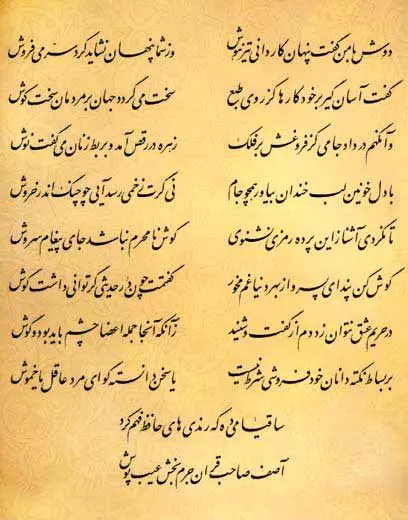 دوش با من گفت پنهان کاردانی تیزهوش وز شما پنهان نشاید کرد سر می فروش
گفت آسان گیر بر خود کارها کز روی طبع سخت می گردد جهان بر مردمان سخت کوش
وآنگهم در داد جامی کز فروغش بر فلک زهره در رقص آمد و بربط زنان می گفت نوش
با دل خونین لب خندان بیاور همچو جام نی گرت زخمی رسد آیی چو چنگ اندر خروش
تا نگردی آشنا زاین پرده رمزی نشنوی گوش نامحرم نباشد جای پیغام سروش
گوش کن پند ای پسر وز بهر دنیا غم مخور گفتمت چون در حدیثی گر توانی داشت گوش
در حریم عشق نتوان زد دم از گفت و شنید زآنکه آنجا جمله اعضا چشم باید بود و گوش
بر بساط نکته دانان خودفروشی شرط نیست یا سخن دانسته گو ای مرد عاقل یا خموش
ساقیا می ده که رندی های حافظ فهم کرد
آصف صاحب قران جرم بخش عیب پوش